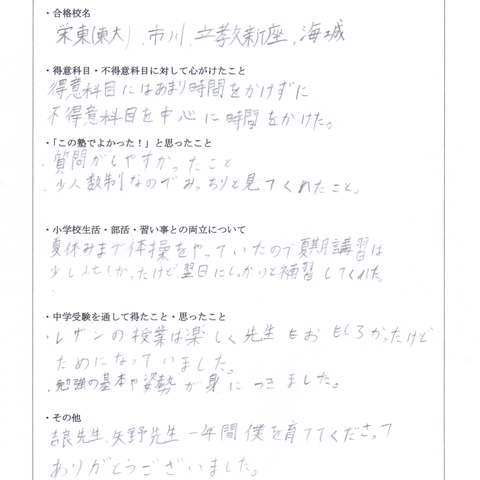 ・合格校名
栄東(東大)、市川、立教新座、海城
・得意科目・不得意科目に対して心がけたこと
得意科目にはあまり時間をかけずに
不得意科目を中心に時間をかけた。
・「この塾でよかった！」と思ったこと
・質問がしやすかったこと
・少人数制なのでみっちりと見てくれたこと。
・小学校生活・部活・習い事との両立について
夏休みまで体操をやっていたので夏期講習は
少し忙しかったけど翌日にしっかりと補習してくれた。
・中学受験を通して得たこと・思ったこと
・レザンの授業は楽しく先生もおもしろかったけど
ためになっていました。
・勉強の基本や姿勢が身につきました。
・その他
吉良先生、矢野先生一年間僕を育ててくださって
ありがとうございました。